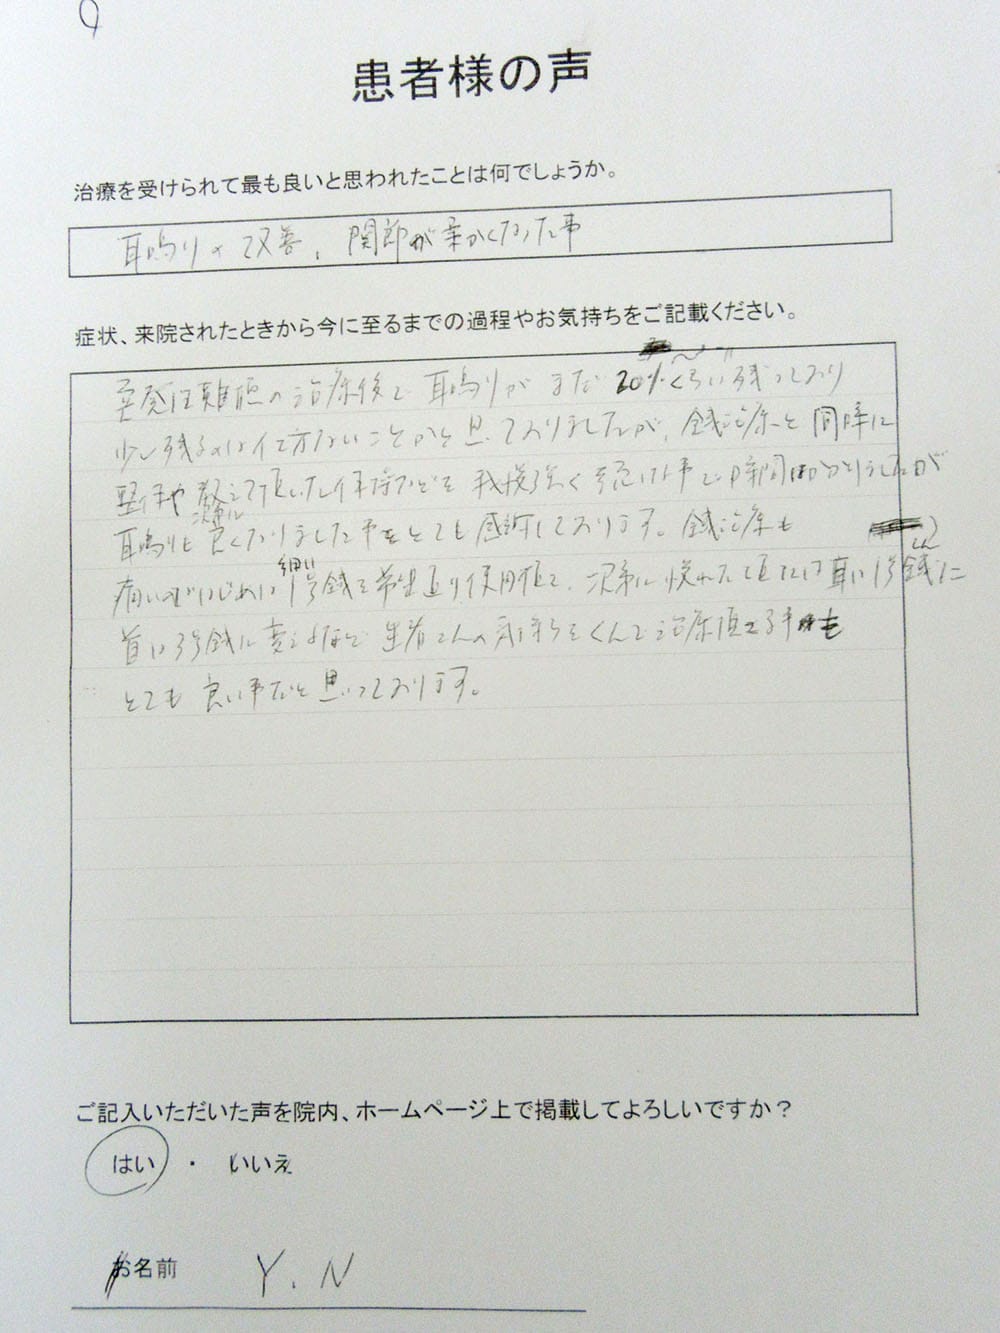 患者様の声
治療を受けられて最も良いと思われたことは何でしょうか。
耳鳴りの改善、関節が柔かくなった事
症状、来院されたときから今に至るまでの過程やお気持ちをご記載ください。
突発性難聴の治療後で耳鳴りがまだ20%くらい残っており
少し残るのは仕方ないことかと思っておりましたが、鍼治療と同時に
整体や教えて頂いた体操などを我慢強く続けた事で時間はかかりましたが
耳鳴りも次第に良くなりました事をとても感謝しております。鍼治療も
痛いのではじめは細い1号鍼を希望通り使用頂き、次第に慣れた頃には耳は1号鍼に
首は3号鍼に変えるなど患者さんの気持ちをくんで治療頂ける事も
とても良い事だと思っております。
ご記入いただいた声を院内、ホームページ上で掲載してよろしいですか？
はい ・ いいえ
お名前 Y.N